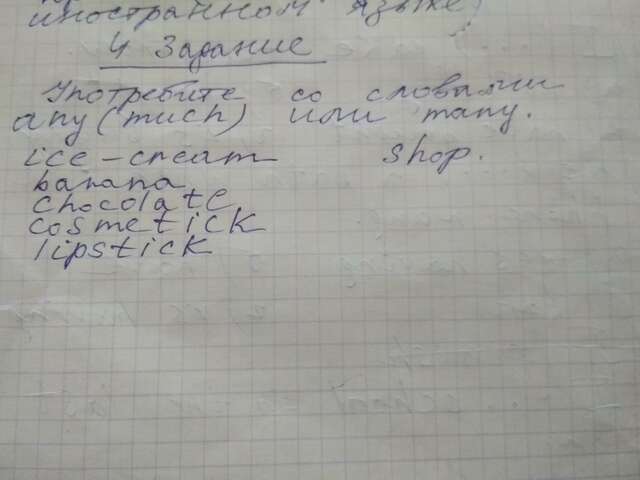 иностранном языке)
4 Задание
Употребите со словами
any (much) или many.
ice-cream shop.
banana
chocolate
cosmetick
lipstick